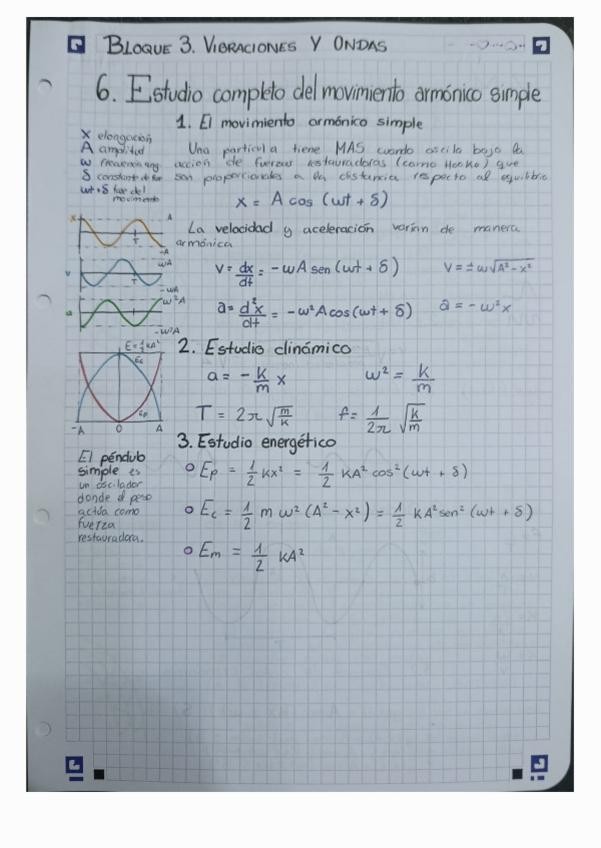 BLOQUE 3. VIBRACIONES Y ONDAS
6. Estudio completo del movimiento armónico simple
1. El movimiento armónico simple
x elongación
A amplitud
ω frecuencia ang.
δ constante de fase
ωt+δ fase del
movimiento
Una partícula tiene MAS cuando oscila bajo la
acción de fuerzas restauradoras (como Hooke) que
son proporcionales a la distancia respecto al equilibrio
x = A cos (ωt + δ)
x A
T
-A
v ωA
T
-ωA
a ω²A
-ω²A
La velocidad y aceleración varían de manera
armónica
v = dx/dt = -ωA sen (ωt + δ) v = ± ω√(A² - x²)
a = d²x/dt = -ω²A cos (ωt + δ) a = - ω²x
2. Estudio dinámico
E = 1/2 kA²
Ec
Ep
-A 0 A
a = - k/m x ω² = k/m
T = 2π √(m/k) f = 1/2π √(k/m)
3. Estudio energético
El péndulo
simple es
un oscilador
donde el peso
actúa como
fuerza
restauradora.
Ep = 1/2 kx² = 1/2 KA² cos² (ωt + δ)
Ec = 1/2 m ω² (A² - x²) = 1/2 KA² sen² (ωt + δ)
Em = 1/2 KA²